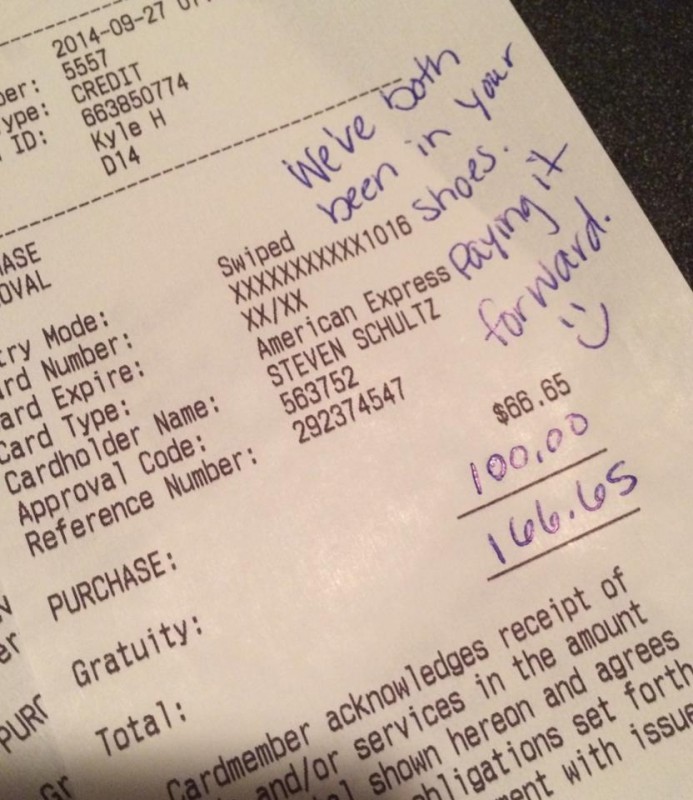 2014-09-27
ber: 5557
ype: CREDIT
ID: 663850774
Kyle H
D14
We've both
been in your
shoes.
Paying it
forward.
:)
ASE
OVAL
try Mode: Swiped
rd Number: XXXXXXXXXXX1016
ard Expire: XX/XX
Card Type: American Express
Cardholder Name: STEVEN SCHULTZ
Approval Code: 563752
Reference Number: 292374547
PURCHASE: $66.65
Gratuity: 100.00
Total: 166.65
Cardmember acknowledges receipt of
and/or services in the amount
shown hereon and agrees
obligations set forth
ment with issue
er
PURC
Gr